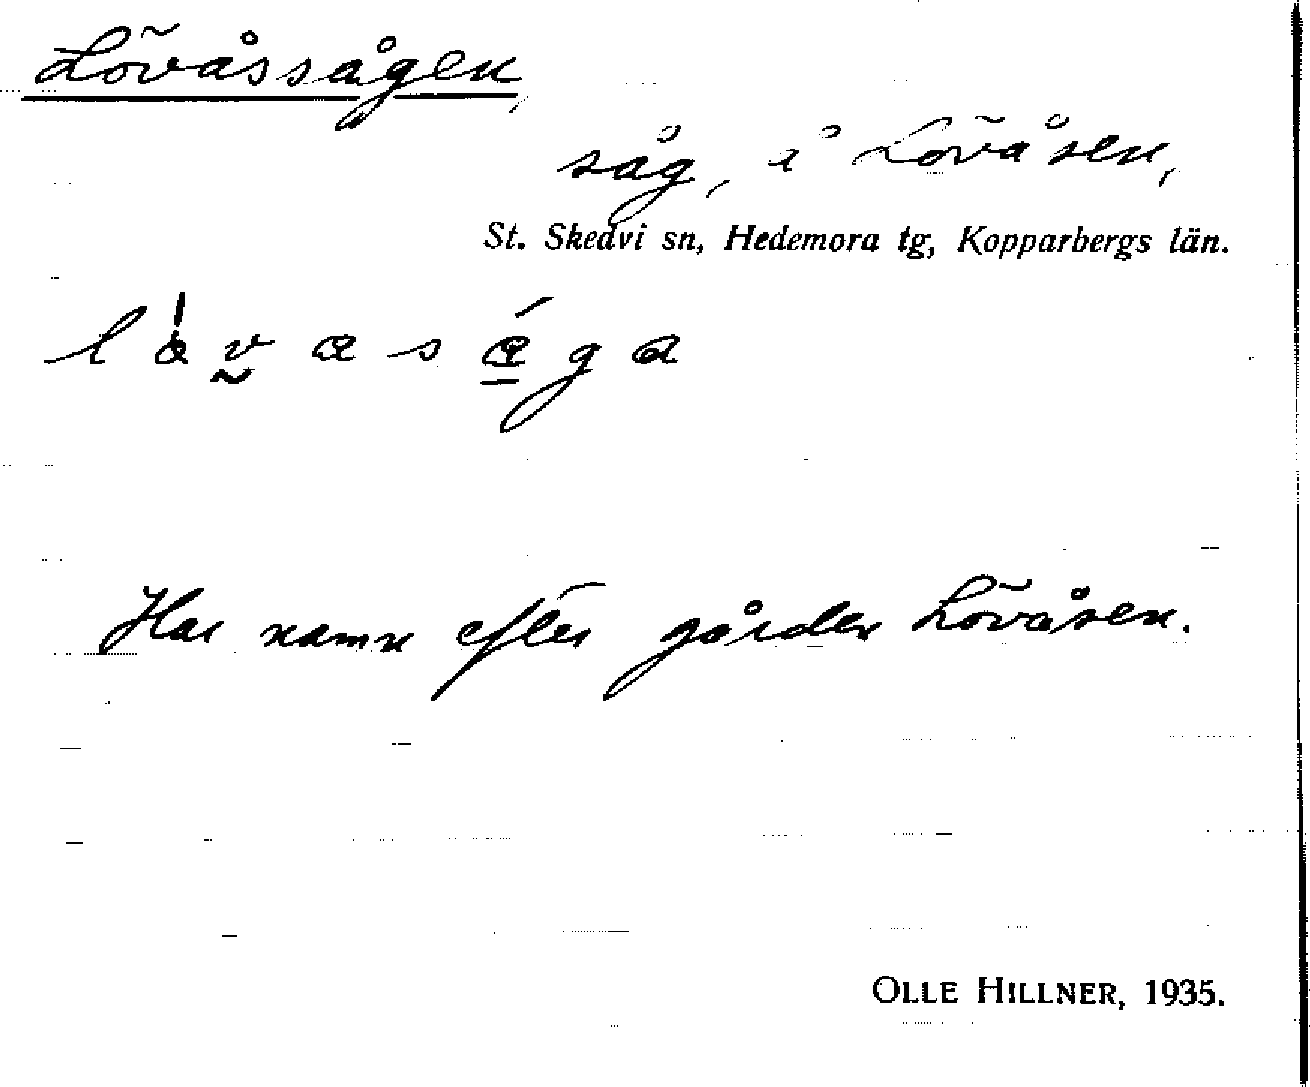 Lövåssågen,
såg, å Lövåsen,
St. Skedvi sn, Hedemora tg, Kopparbergs län.
Har namn efter gården Lövåsen.
OLLE HILLNER, 1935.